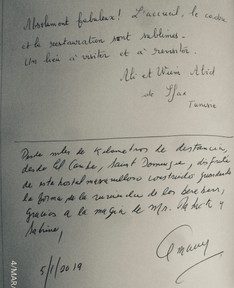 Absolument fabuleux! L'accueil, le cadre
et la restauration sont sublimes.
Un lieu à visiter et à revisiter
Ali et Abid
de Sfax
Tunisie
Desde miles de kilometros de distancia,
desde el Caribe, Saint Domingue, disfruté
de este hostal maravilloso construido guardando
la forma de la vivienda de los bereberes,
gracias a la magia de Mr. y
Sabrine,
5/1/2019
4/MAR